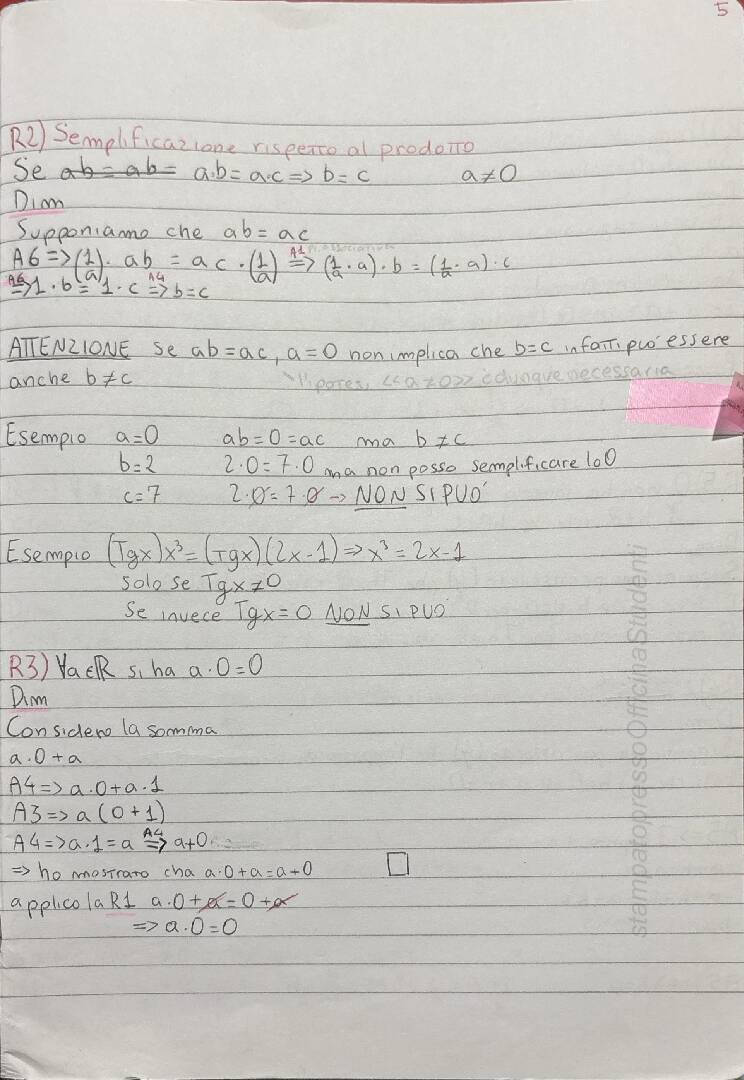 5
R2) Semplificazione rispetto al prodotto
Se ab = ab = a·b = a·c => b = c a≠0
Dim
Supponiamo che ab = ac
A6 => (1/a) · ab = ac · (1/a) A1=> (1/a · a) · b = (1/a · a) · c
A6=> 1 · b = 1 · c A4=> b = c
ATTENZIONE se ab = ac, a = 0 non implica che b = c infatti può essere
anche b ≠ c «a ≠ 0» è dunque necessaria
Esempio a = 0 ab = 0 = ac ma b ≠ c
b = 2 2·0 = 7·0 ma non posso semplificare lo 0
c = 7 2·0 = 7·0 → NON SI PUO'
Esempio (Tgx)x³ = (Tgx)(2x-1) => x³ = 2x-1
solo se Tgx ≠ 0
Se invece Tgx = 0 NON SI PUO'
R3) ∀a∈ℝ si ha a·0 = 0
Dim
Considero la somma
a·0 + a
A4 => a·0 + a·1
A3 => a(0+1)
A4 => a·1 = a A4=> a+0
=> ho mostrato cha a·0 + a = a + 0 □
applico la R1 a·0 + a = 0 + a
=> a·0 = 0
stampatopressoOfficinaStudenti